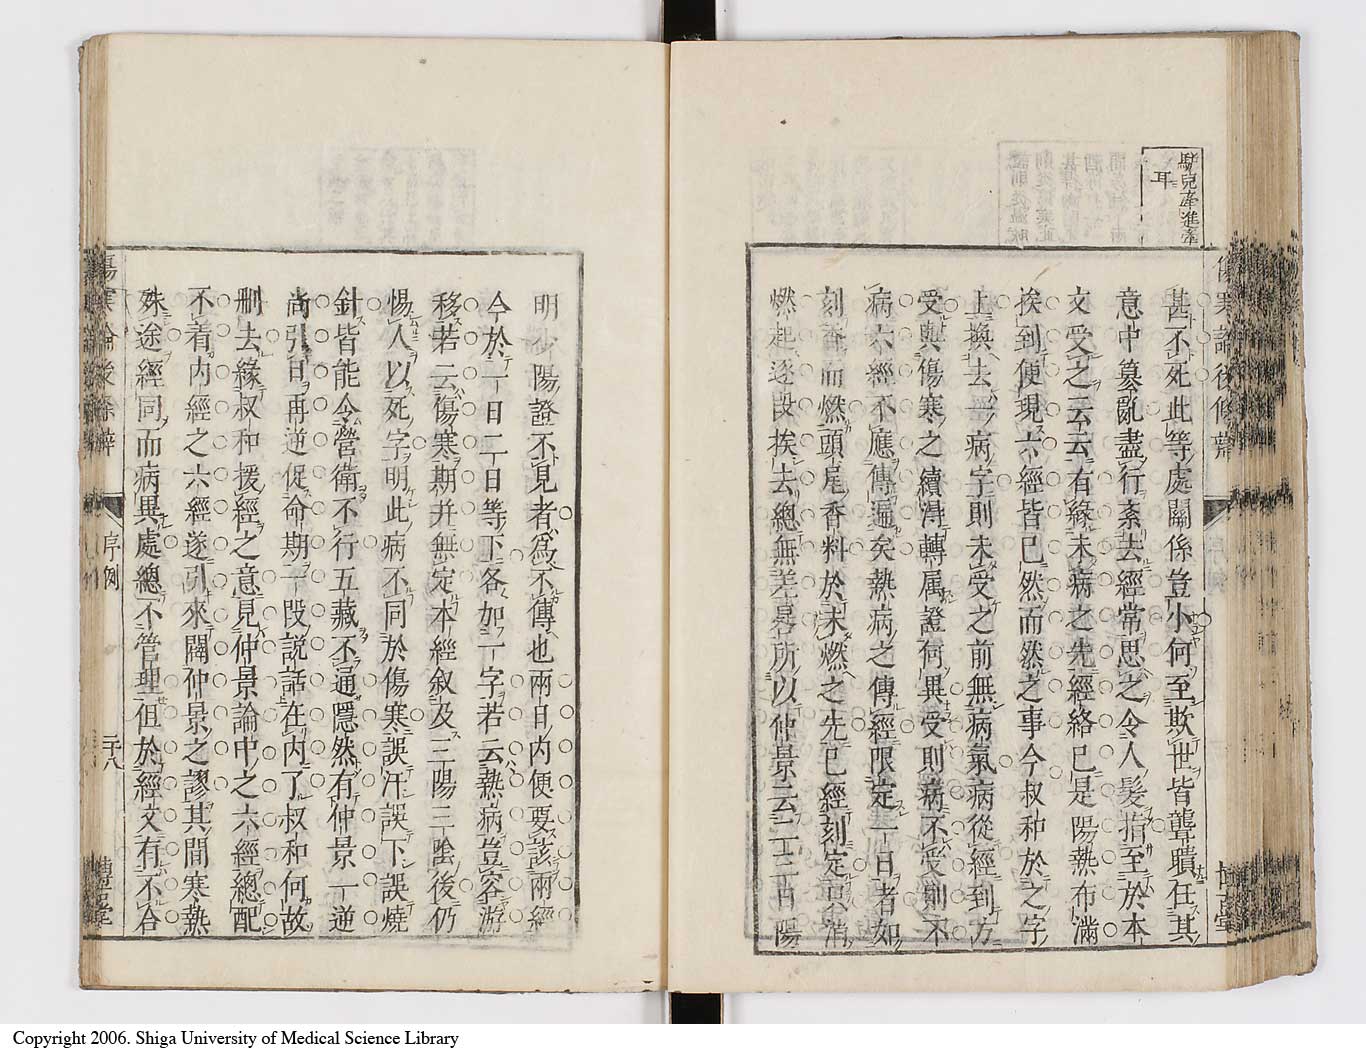 甚不死此等處關係豈小何至欺世皆聾瞶任其
意中纂亂盡行紊去經常思之令人髮指至於本
文受之云云有緣未病之先經絡已是陽熱布滿
挨到便現六經皆已然而然之事今叔和於之字
上換去一病字則未受之前無病氣病從經到方
受與傷寒之續得轉属證何異受則病不受則不
病六經不應傳遍矣熱病之傳經限定一日者如
刻香而燃頭尾香料於未燃之先已經刻定只消
燃起逐段挨去總無差畧所以仲景云二三日陽
明少陽證不見者爲不傳也兩日内便要該兩經
今於一日二日等下各加一字若云熱病豈容游
移若云傷寒期并無定本經叙及三陽三陰後仍
惕人以死字明此病不同於傷寒誤汗誤下誤燒
針皆能令營衛不行五藏不通隱然有仲景一逆
尚引日再逆促命期一段説話在内了叔和何故
刪去緣叔和援經之意見仲景論中之六經總配
不着内經之六經遂引來闢仲景之謬其間寒熱
殊途經同而病異處總不管理但於經文有不合
傷寒論後條辨
序例
二十八
博古堂
耳
Copyright 2006. Shiga University of Medical Science Library